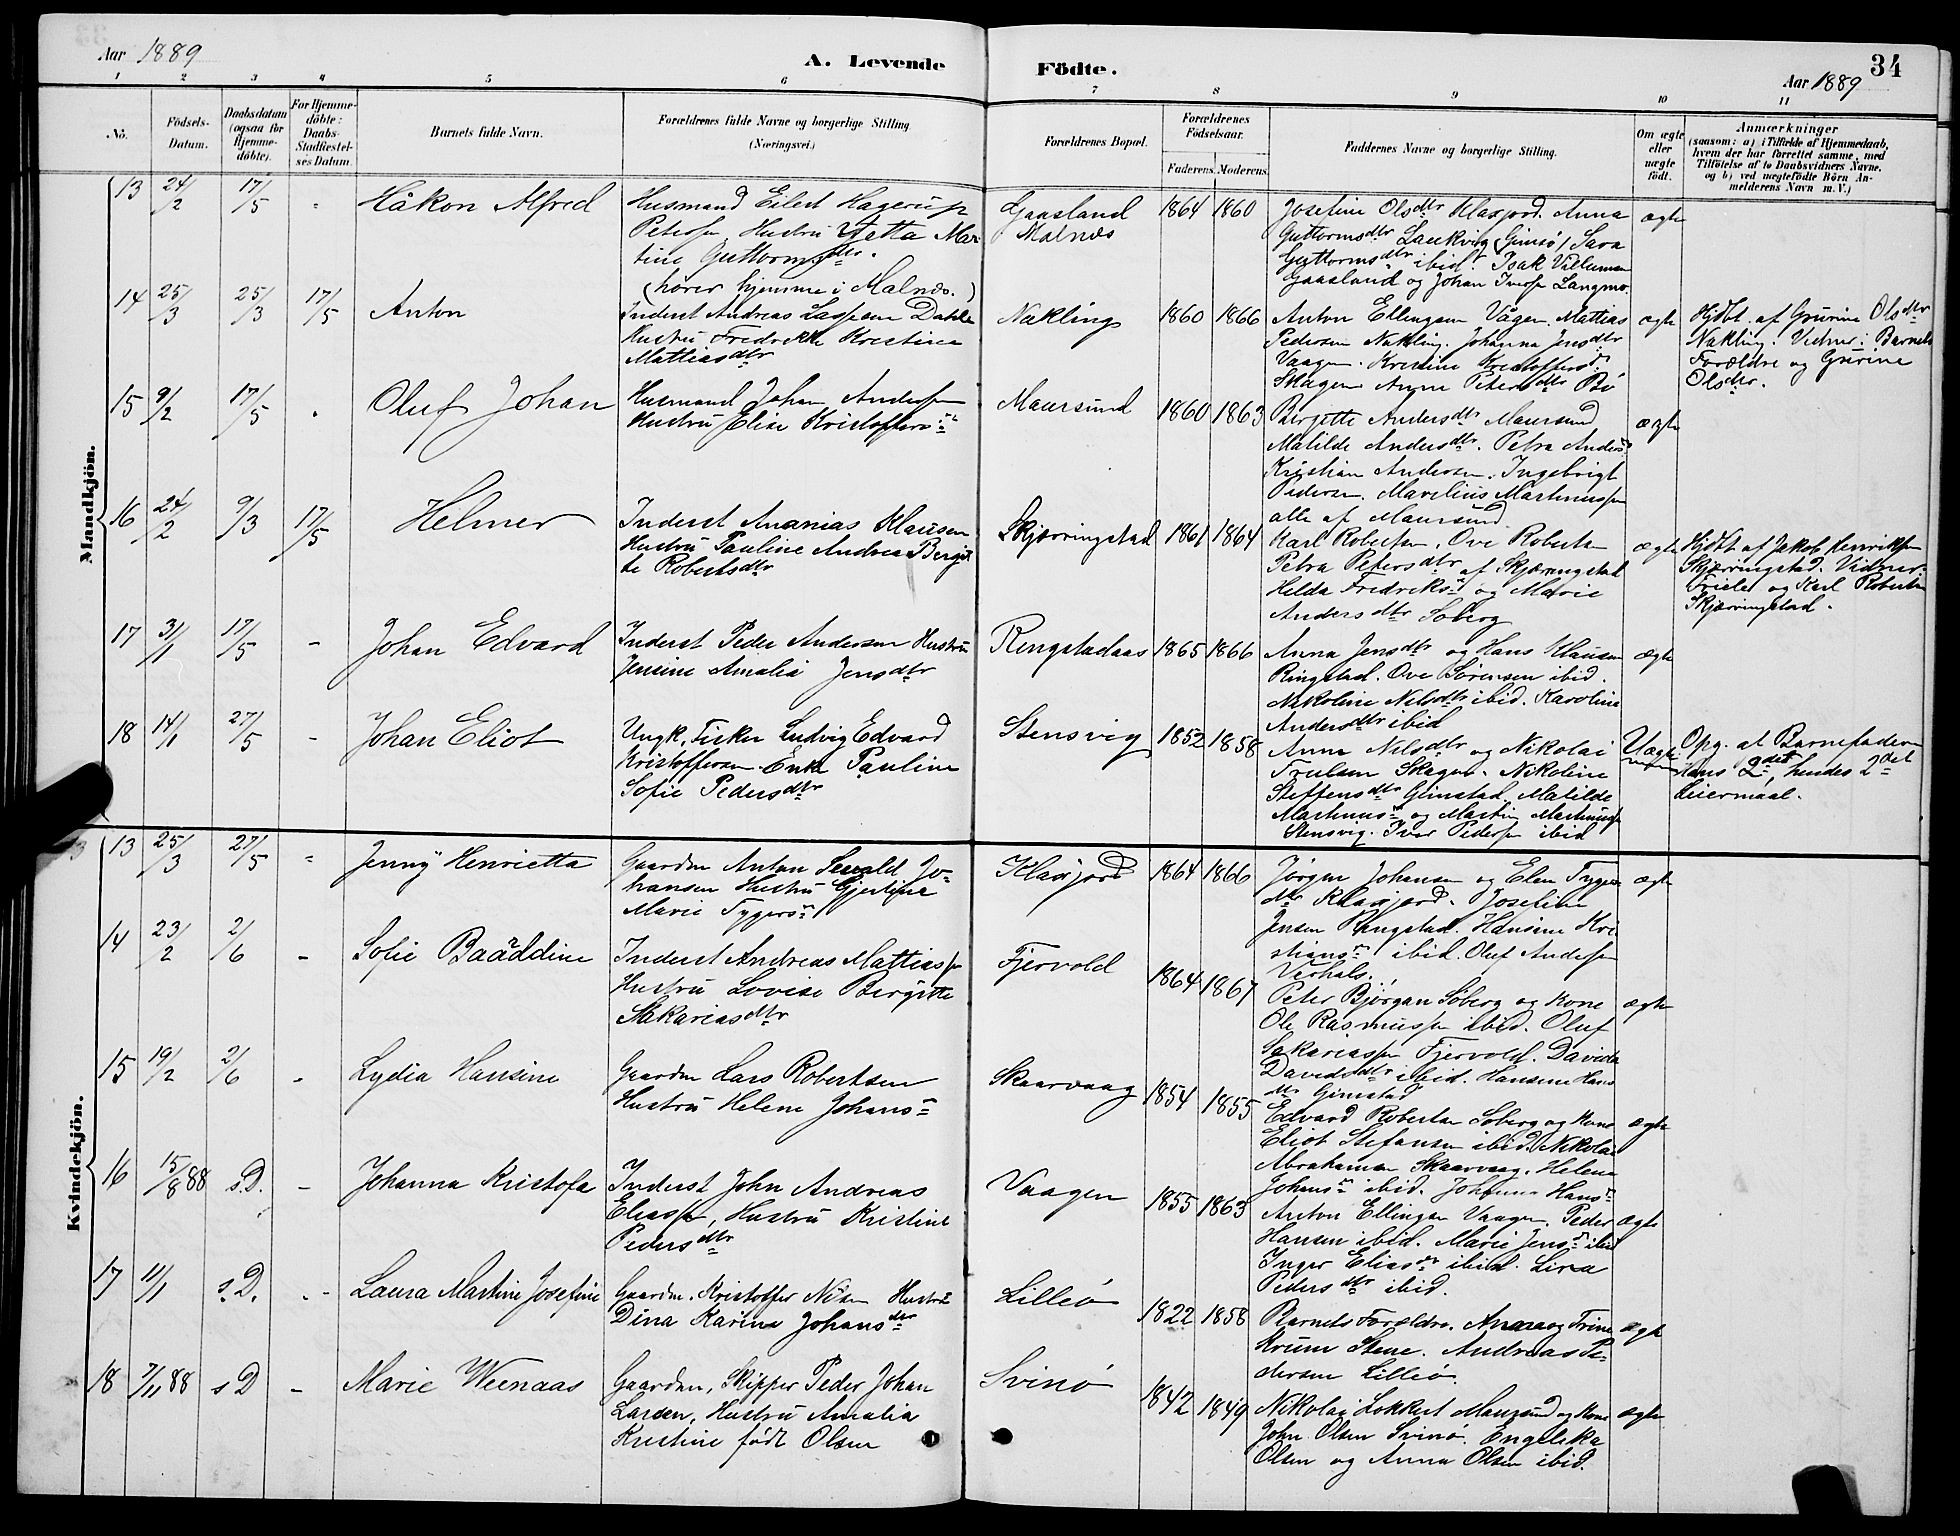 Aar 1889
A. Levende Födte.
Aar 1889
34
1 2 3 4 5 6 7 8 9 10 11
No.
Födsels-Datum.
Daabsdatum (ogsaa for Hjemme-döbte).
For Hjemme-döbte: Daabs-Stadfæstel-ses Datum.
Barnets fulde Navn.
Forældrenes fulde Navne og borgerlige Stilling (Næringsvei.)
Forældrenes Bopæl.
Forældrenes Födselsaar.
Faderens. Moderens.
Faddernes Navne og borgerlige Stilling.
Om ægte eller uægte födt.
Anmærkninger
(saasom: a) i Tilfælde af Hjemmedaab, hvem der har forrettet samme, med Tilföielse af to Daabsvidners Navne, og b) ved uægtefödte Börn An-melderens Navn m.V.)
Mandkjön.
13 24/2 17/5 - Håkon Alfred
Husmand Eilert Hagerup
Peters, Hustru Jetta Mar
tine Guttormsdtr.
(hører hjemme i Malnæs.)
Gaasland
Malnæs
1864 1860
Josefine Olsdtr Klaxjord. Anna
Guttormsdtr Laukvig (Gimsö) Sara
Guttormsdtr ibid. Isak Villumsen
Gaasland og Johan Ivers Langmo.
ægte
14 25/3 25/3 17/5 Anton
Inderst Andreas Lassesen Dahle
Hustru Fredrikke Kristina
Mattiasdtr
Nakling
1860 1866
Anton Ellingsen Vågen. Mattias
Pedersen Nakling. Johanna Jensdtr
Vaagen. Kristine Kristoffersd.
Skagen Anne Petersdtr Bö
ægte
Hjdbt af Gurine Olsdtr
Nakling. Vidner: Barnets
Forældre og Gurine
Olsdtr.
15 9/2 17/5 - Oluf Johan
Husmand Johan Anders
Hustru Elise Kristoffers
Maursund
1860 1863
Birgitte Andersdtr Maursund
Matilde Andersdtr. Petra Anders
Kristian Andersen. Ingebrigt
Pedersen. Marelius Martinussen
alle af Maursund
ægte
16 24/2 9/3 17/5 Helmer
Inderst Ananias Klausen
Hustru Pauline Andrea Bergit
te Robertsdtr
Skjærringstad
1861 1864
Karl Robertsen. Ove Robertsen
Petra Petersdtr af Skjærringstad
Helda Fredriks og Marie
Andersdtr Soberg
ægte
Hjdbt af Jakob Henriksen
Skjærringstad. Vidner:
og Karl Robertsen
Skjærringstad.
17 31/1 17/5 - Johan Edvard
Inderst Peder Andersen Hustru
Jensine Amalia Jensdtr
Ringstadaas
1865 1866
Anna Jensdtr og Hans Klausen
Ringstad. Ove Sørensen ibid.
Nikoline Nilsdtr ibid. Karoline
Andersdtr ibid
ægte
18 14/1 27/5 - Johan Eliot
Ungk. Fisker Ludvig Edvard
Kristoffersen. Enke Pauline
Sofie Pedersdtr
Stensvig
1852 1858
Anna Nilsdtr og Nikolai
Trulsen Skagen. Nikoline
Steffensdtr Glimstad. Matilde
Martinus og Martin Martinussen
Stensvig. Ivar Peders ibid
Uægte
Opg. at Barnefaderen
Hans 2det, hendes 2det
Leiermaal.
Kvindekjön.
13 25/3 27/5 - Jenny Henrietta
Gaardm Anton Sevald Jo-
hansen Hustru Gjertine
Marie Tygers
Klaxjord
1864 1866
Jørgen Johansen og Elen Tygers
dtr Klaxjord. Joseline
Jensen Ringstad. Hansine Kri
stians ibid. Oluf Anders
Verhals.
ægte
14 23/2 2/6 - Sofie Baäddine
Inderst Andreas Mattiass
Hustru Lovise Bergitte
Sakariasdtr
Fjervold
1864 1867
Peter Bjørgan Soberg og Kone
Ole Rasmuss ibid. Oluf
Sakarias Fjervold. Davida
Davidsdtr ibid. Hansine Hans
dtr Gimstad
ægte
15 19/2 2/6 - Lydia Hansine
Gaardm Lars Robertsen
Hustru Helene Johans
Skaarvaag
1854 1855
Edvard Robertsen Soberg og Kone
Eliot Stefansen ibid. Nikolai
Abrahamsen Skaarvaag. Helena
Johans ibid. Johanna Hans
ægte
16 15/8 88 s.D. - Johanna Kristofa
Inderst John Andreas
Eliass, Hustru Kristine
Pedersdtr
Vaagen
1855 1863
Anton Ellingsen Vaagen. Peder
Hansen ibid. Marie Jens ibid
Inger Elias ibid. Lina
Pedersdtr ibid.
ægte
17 11/1 s.D. - Laura Martine Josefine
Gaardm. Kristoffer Nilsen Hustru
Dina Karina Johansdtr
Lilleö
1822 1858
Barnets Forældre. Anna og Trine
Krum Stene. Andreas Pe-
dersen Lilleö.
ægte
18 7/11 88 s D - Marie Weenaas
Gaardm, Skipper Peder Johan
Larsen, Hustru Amalia
Kristine født Olsen
Svinö
1842 1849
Nikolai Lokkert Maursund og Kone
John Olsen Svinö. Engelika
Olsen og Anna Olsen ibid.
ægte